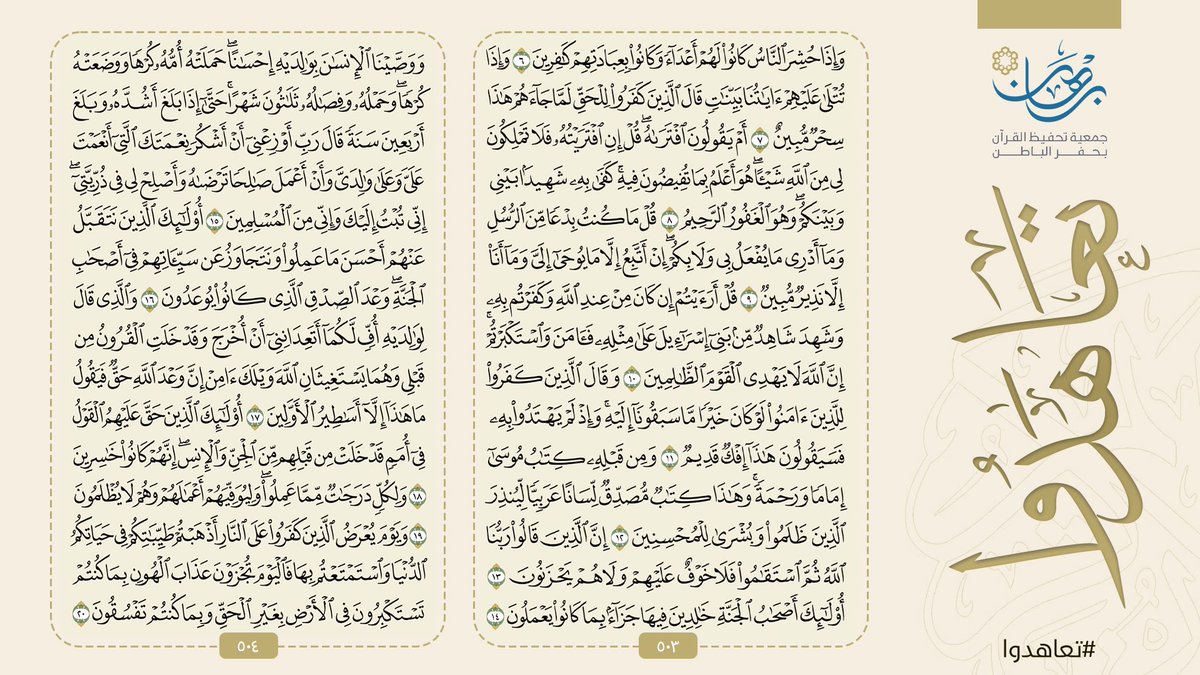 برهان
جمعية تحفيظ القرآن
بحفر الباطن
تعاهدوا
#تعاهدوا
وَإِذَا حُشِرَ ٱلنَّاسُ كَانُوا۟ لَهُمْ أَعْدَآءً وَكَانُوا۟ بِعِبَادَتِهِمْ كَٰفِرِينَ ٦ وَإِذَا
تُتْلَىٰ عَلَيْهِمْ ءَايَٰتُنَا بَيِّنَٰتٍ قَالَ ٱلَّذِينَ كَفَرُوا۟ لِلْحَقِّ لَمَّا جَآءَهُمْ هَٰذَا
سِحْرٌ مُّبِينٌ ٧ أَمْ يَقُولُونَ ٱفْتَرَىٰهُ ۖ قُلْ إِنِ ٱفْتَرَيْتُهُۥ فَلَا تَمْلِكُونَ
لِى مِنَ ٱللَّهِ شَيْـًٔا ۖ هُوَ أَعْلَمُ بِمَا تُفِيضُونَ فِيهِ ۖ كَفَىٰ بِهِۦ شَهِيدًۢا بَيْنِى
وَبَيْنَكُمْ ۖ وَهُوَ ٱلْغَفُورُ ٱلرَّحِيمُ ٨ قُلْ مَا كُنتُ بِدْعًا مِّنَ ٱلرُّسُلِ
وَمَآ أَدْرِى مَا يُفْعَلُ بِى وَلَا بِكُمْ ۖ إِنْ أَتَّبِعُ إِلَّا مَا يُوحَىٰٓ إِلَىَّ وَمَآ أَنَا۠
إِلَّا نَذِيرٌ مُّبِينٌ ٩ قُلْ أَرَءَيْتُمْ إِن كَانَ مِنْ عِندِ ٱللَّهِ وَكَفَرْتُم بِهِۦ
وَشَهِدَ شَاهِدٌ مِّنۢ بَنِىٓ إِسْرَٰٓءِيلَ عَلَىٰ مِثْلِهِۦ فَـَٔامَنَ وَٱسْتَكْبَرْتُمْ ۖ
إِنَّ ٱللَّهَ لَا يَهْدِى ٱلْقَوْمَ ٱلظَّٰلِمِينَ ١٠ وَقَالَ ٱلَّذِينَ كَفَرُوا۟
لِلَّذِينَ ءَامَنُوا۟ لَوْ كَانَ خَيْرًا مَّا سَبَقُونَآ إِلَيْهِ ۚ وَإِذْ لَمْ يَهْتَدُوا۟ بِهِۦ
فَسَيَقُولُونَ هَٰذَآ إِفْكٌ قَدِيمٌ ١١ وَمِن قَبْلِهِۦ كِتَٰبُ مُوسَىٰٓ
إِمَامًا وَرَحْمَةً ۚ وَهَٰذَا كِتَٰبٌ مُّصَدِّقٌ لِّسَانًا عَرَبِيًّا لِّيُنذِرَ
ٱلَّذِينَ ظَلَمُوا۟ وَبُشْرَىٰ لِلْمُحْسِنِينَ ١٢ إِنَّ ٱلَّذِينَ قَالُوا۟ رَبُّنَا
ٱللَّهُ ثُمَّ ٱسْتَقَٰمُوا۟ فَلَا خَوْفٌ عَلَيْهِمْ وَلَا هُمْ يَحْزَنُونَ ١٣
أُو۟لَٰٓئِكَ أَصْحَٰبُ ٱلْجَنَّةِ خَٰلِدِينَ فِيهَا جَزَآءًۢ بِمَا كَانُوا۟ يَعْمَلُونَ ١٤
٥٠٣
وَوَصَّيْنَا ٱلْإِنسَٰنَ بِوَٰلِدَيْهِ إِحْسَٰنًا ۖ حَمَلَتْهُ أُمُّهُۥ كُرْهًا وَوَضَعَتْهُ
كُرْهًا ۖ وَحَمْلُهُۥ وَفِصَٰلُهُۥ ثَلَٰثُونَ شَهْرًا ۚ حَتَّىٰٓ إِذَا بَلَغَ أَشُدَّهُۥ وَبَلَغَ
أَرْبَعِينَ سَنَةً قَالَ رَبِّ أَوْزِعْنِىٓ أَنْ أَشْكُرَ نِعْمَتَكَ ٱلَّتِىٓ أَنْعَمْتَ
عَلَىَّ وَعَلَىٰ وَٰلِدَىَّ وَأَنْ أَعْمَلَ صَٰلِحًا تَرْضَىٰهُ وَأَصْلِحْ لِى فِى ذُرِّيَّتِىٓ ۖ
إِنِّى تُبْتُ إِلَيْكَ وَإِنِّى مِنَ ٱلْمُسْلِمِينَ ١٥ أُو۟لَٰٓئِكَ ٱلَّذِينَ نَتَقَبَّلُ
عَنْهُمْ أَحْسَنَ مَا عَمِلُوا۟ وَنَتَجَاوَزُ عَن سَيِّـَٔاتِهِمْ فِىٓ أَصْحَٰبِ
ٱلْجَنَّةِ ۖ وَعْدَ ٱلصِّدْقِ ٱلَّذِى كَانُوا۟ يُوعَدُونَ ١٦ وَٱلَّذِى قَالَ
لِوَٰلِدَيْهِ أُفٍّ لَّكُمَآ أَتَعِدَانِنِىٓ أَنْ أُخْرَجَ وَقَدْ خَلَتِ ٱلْقُرُونُ مِن
قَبْلِى وَهُمَا يَسْتَغِيثَانِ ٱللَّهَ وَيْلَكَ ءَامِنْ إِنَّ وَعْدَ ٱللَّهِ حَقٌّ فَيَقُولُ
مَا هَٰذَآ إِلَّآ أَسَٰطِيرُ ٱلْأَوَّلِينَ ١٧ أُو۟لَٰٓئِكَ ٱلَّذِينَ حَقَّ عَلَيْهِمُ ٱلْقَوْلُ
فِىٓ أُمَمٍ قَدْ خَلَتْ مِن قَبْلِهِم مِّنَ ٱلْجِنِّ وَٱلْإِنسِ ۖ إِنَّهُمْ كَانُوا۟ خَٰسِرِينَ
١٨ وَلِكُلٍّ دَرَجَٰتٌ مِّمَّا عَمِلُوا۟ ۖ وَلِيُوَفِّيَهُمْ أَعْمَٰلَهُمْ وَهُمْ لَا يُظْلَمُونَ
١٩ وَيَوْمَ يُعْرَضُ ٱلَّذِينَ كَفَرُوا۟ عَلَى ٱلنَّارِ أَذْهَبْتُمْ طَيِّبَٰتِكُمْ فِى حَيَاتِكُمُ
ٱلدُّنْيَا وَٱسْتَمْتَعْتُم بِهَا فَٱلْيَوْمَ تُجْزَوْنَ عَذَابَ ٱلْهُونِ بِمَا كُنتُمْ
تَسْتَكْبِرُونَ فِى ٱلْأَرْضِ بِغَيْرِ ٱلْحَقِّ وَبِمَا كُنتُمْ تَفْسُقُونَ ٢٠
٥٠٤